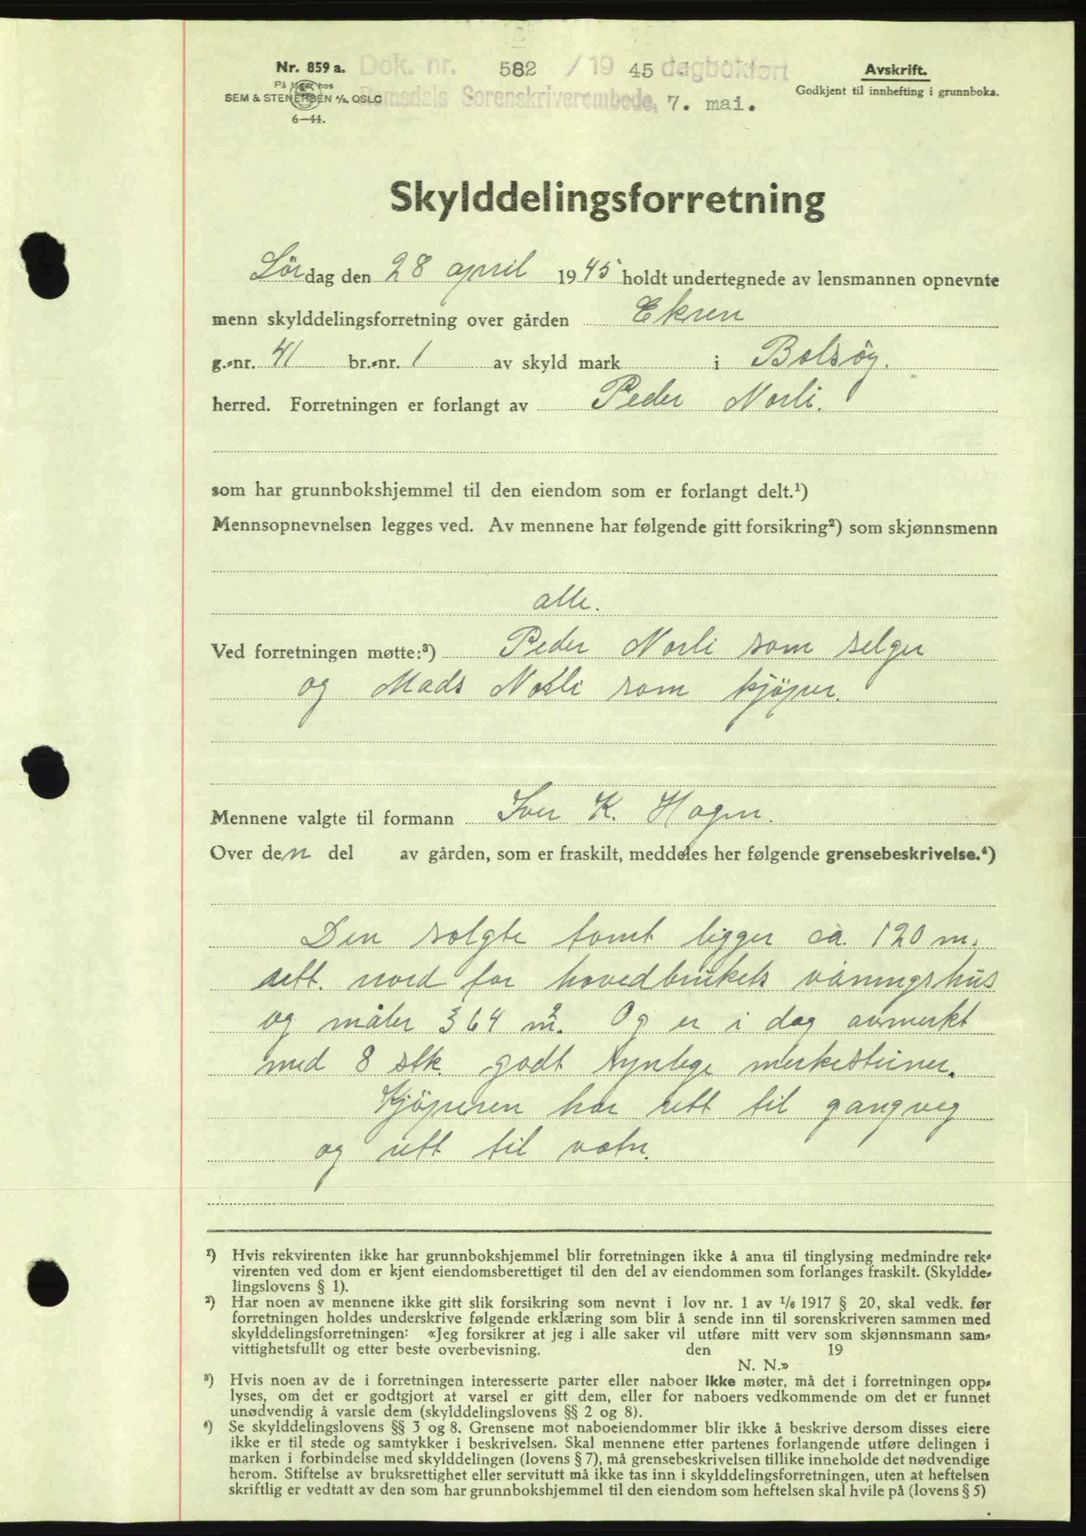 Nr. 859 a. Dok. nr. 582 / 19 45 dagbokført
Avskrift.
På lager hos
Godkjent til innhefting i grunnboka.
SEM & STENERSEN A/S, OSLO Romsdals Sorenskriverembede, 7. mai.
6—44.
Skylddelingsforretning
Lördag den 28 april 1945 holdt undertegnede av lensmannen opnevnte
menn skylddelingsforretning over gården Ekren
g.-nr. 41 br.-nr. 1 av skyld mark i Bolsöy.
herred. Forretningen er forlangt av Peder Norli.
som har grunnbokshjemmel til den eiendom som er forlangt delt.¹)
Mennsopnevnelsen legges ved. Av mennene har følgende gitt forsikring²) som skjønnsmenn
alle.
Ved forretningen møtte:³) Peder Norli som selger
og Mads Norli som kjöper.
Mennene valgte til formann Iver K. Hagen.
Over den del av gården, som er fraskilt, meddeles her følgende grensebeskrivelse.⁴)
Den solgte tomt ligger ca. 120 m.
rett nord for hovedbrukets våningshus
og måler 364 m². Og er i dag avmerkt
med 8 stk. godt synlege merkesteiner.
Kjöperen har rett til gangveg
og rett til vatn.
¹) Hvis rekvirenten ikke har grunnbokshjemmel blir forretningen ikke å anta til tinglysing medmindre rek-
virenten ved dom er kjent eiendomsberettiget til den del av eiendommen som forlanges fraskilt. (Skyldde-
lingslovens § 1).
²) Har noen av mennene ikke gitt slik forsikring som nevnt i lov nr. 1 av 1/6 1917 § 20, skal vedk. før
forretningen holdes underskrive følgende erklæring som blir å sende inn til sorenskriveren sammen med
skylddelingsforretningen: «Jeg forsikrer at jeg i alle saker vil utføre mitt verv som skjønnsmann sam-
vittighetsfullt og etter beste overbevisning. den 19
N. N.»
³) Hvis noen av de i forretningen interesserte parter eller naboer ikke møter, må det i forretningen opp-
lyses, om det er godtgjort at varsel er gitt dem, eller for naboers vedkommende om det er funnet
unødvendig å varsle dem (skylddelingslovens §§ 2 og 8).
⁴) Se skylddelingslovens §§ 3 og 8. Grensene mot naboeiendommer blir ikke å beskrive dersom disses eiere
ikke er til stede og samtykker i beskrivelsen. Skal mennene etter partenes forlangende utføre delingen i
marken i forbindelse med skylddelingen (lovens § 7), må grensebeskrivelsen tillike inneholde det nødvendige
herom. Stiftelse av bruksrettighet eller servitutt må ikke tas inn i skylddelingsforretningen, uten at heftelsen
skriftlig er vedtatt av den som har grunnbokshjemmel til den eiendom som heftelsen skal hvile på (lovens § 5)